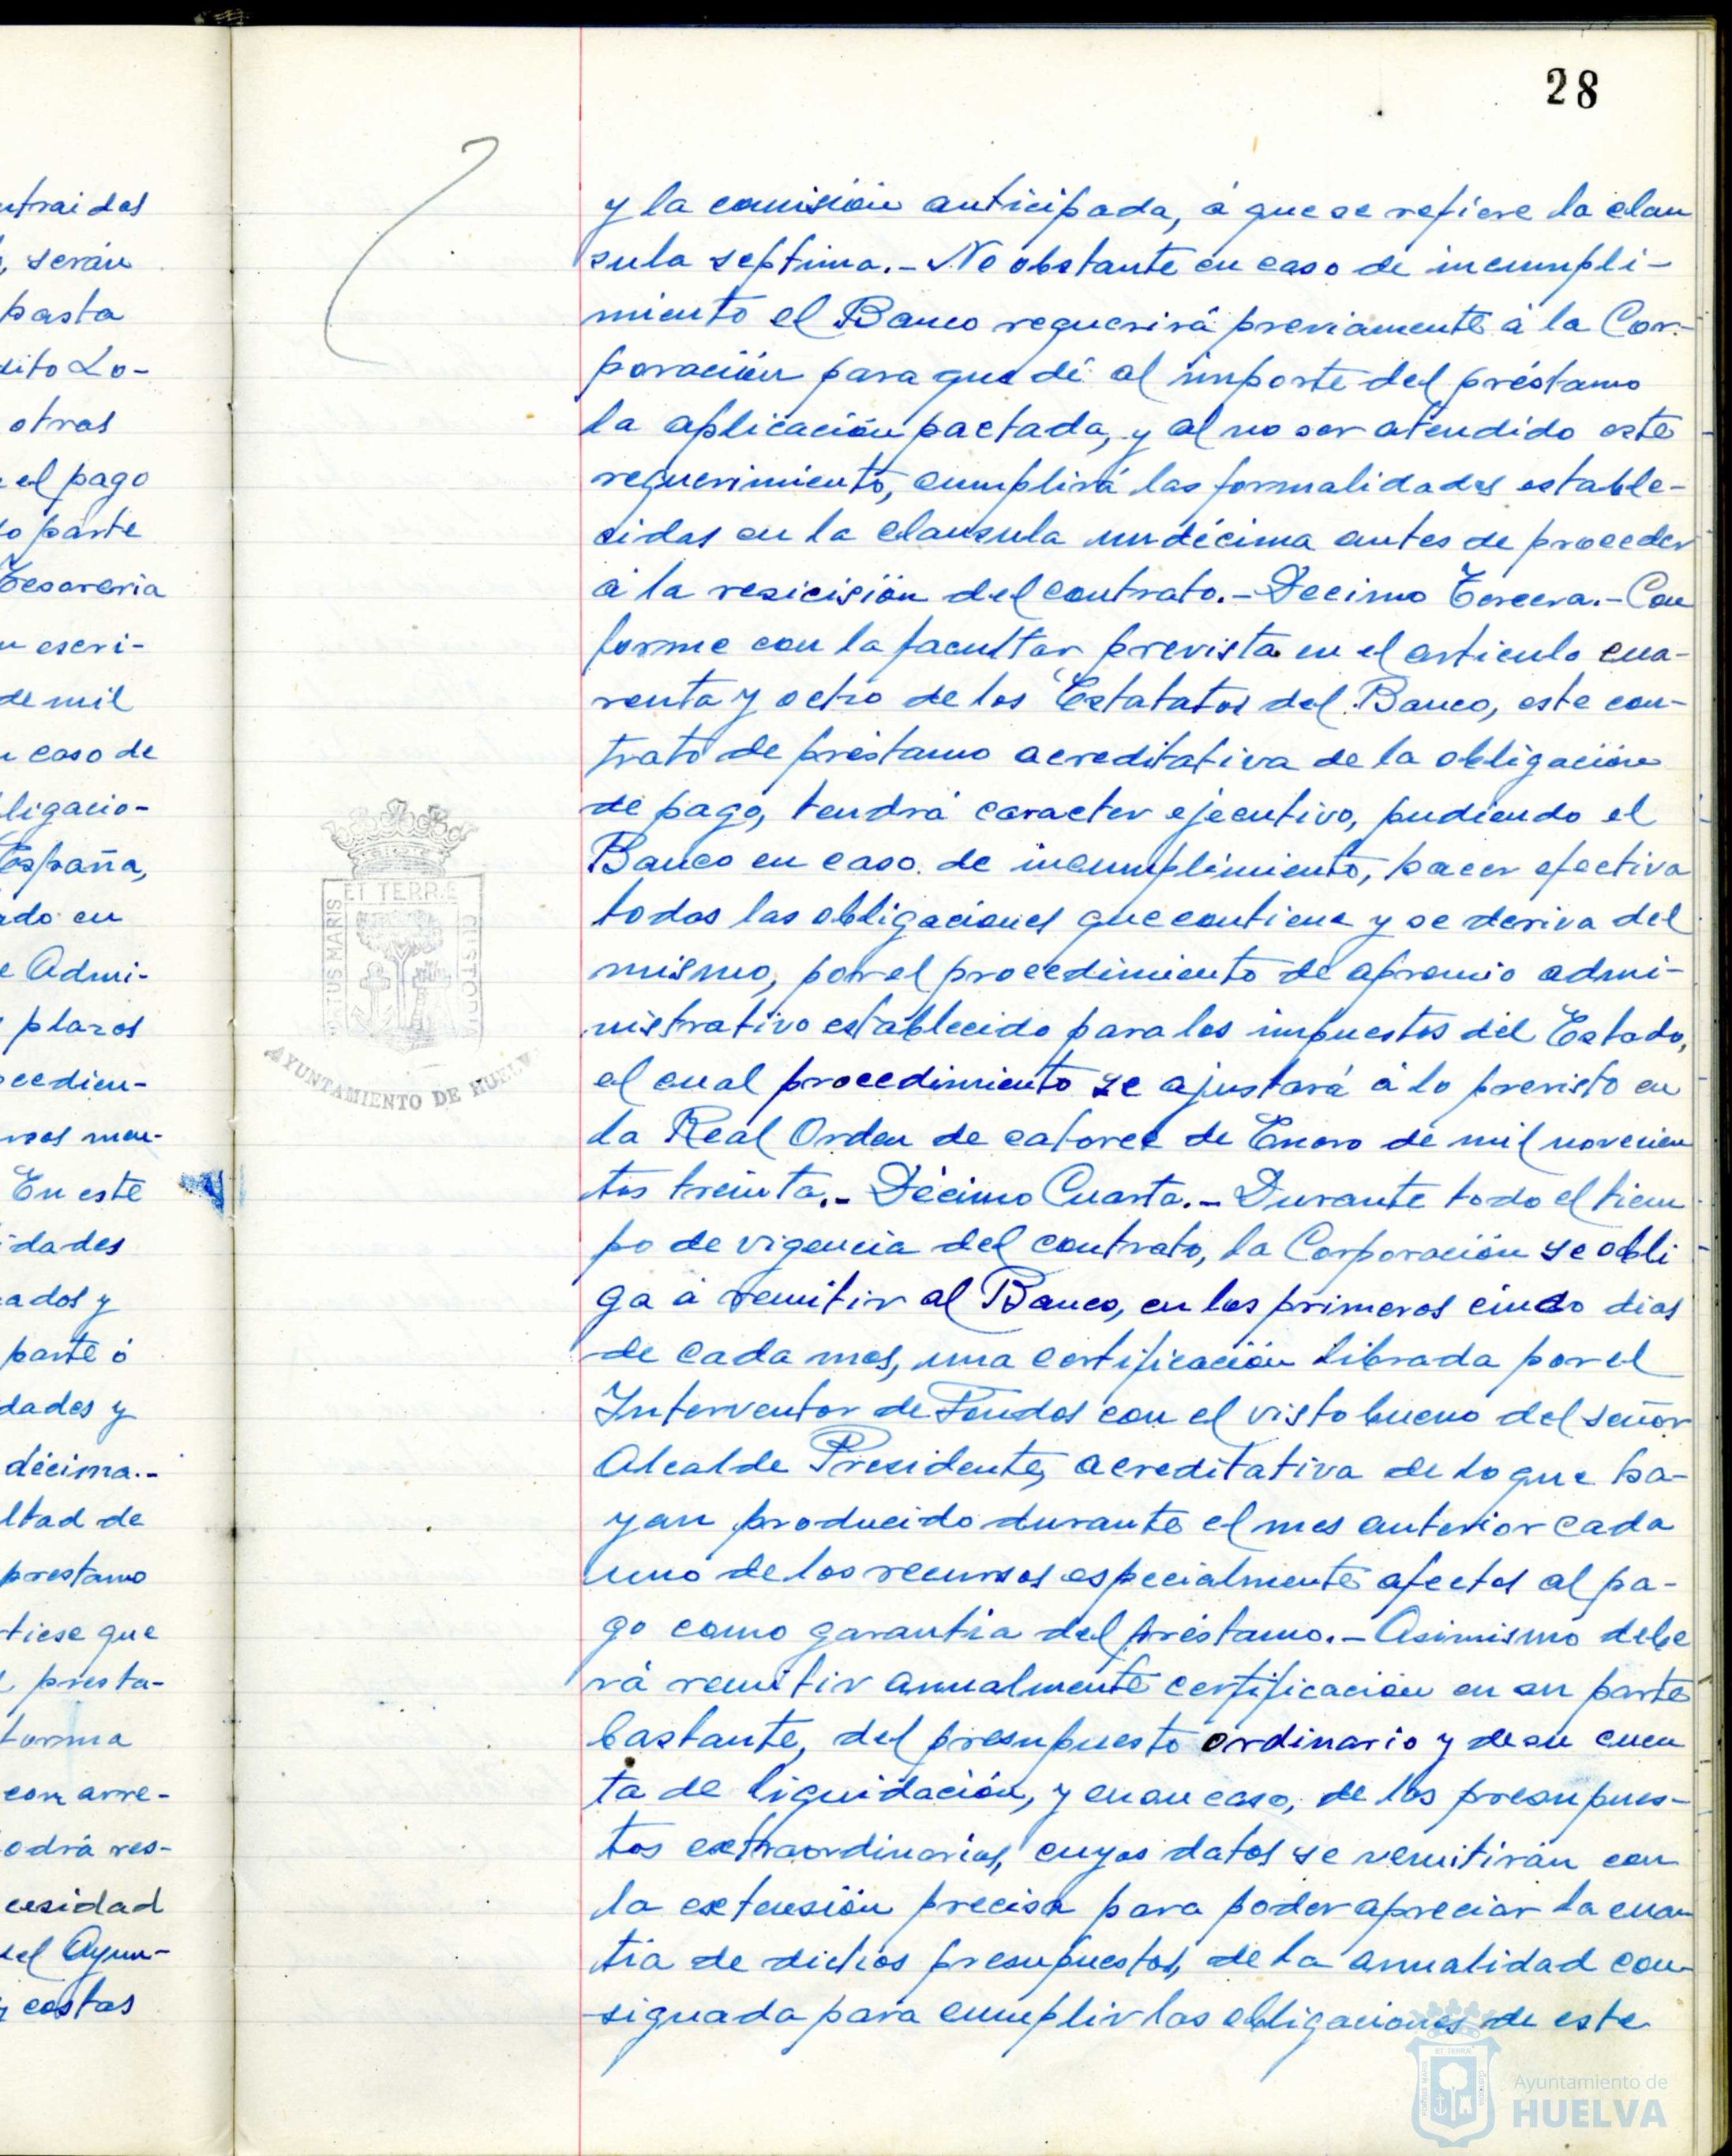 28
utraidos
, serán
pasta
dito Lo-
otras
el pago
do parte
Tesoreria
n escri-
de mil
n caso de
ligacio-
España,
ado en
e Admi-
plazos
cedien-
rsos men-
En este
idades
ados y
parte ó
dades y
décima.-
ltad de
prestamo
tiese que
presta-
forma
con arre-
odrá res-
cesidad
del Ayun-
y costas
y la comisión anticipada, á que se refiere la clau
sula septima.- No obstante en caso de incumpli-
miento el Banco requerirá previamente á la Cor-
poración para que dé al importe del préstamo
la aplicación pactada, y al no ser atendido este
requerimiento, cumplirá las formalidades estable-
cidas en la clausula undécima antes de proceder
á la resicisión del contrato.- Decimo Tercera.- Con
forme con la facultar prevista en el articulo cua-
renta y ocho de los Estatatos del Banco, este con-
trato de préstamo acreditativa de la obligación
de pago, tendrá caracter ejecutivo, pudiendo el
Banco en caso de incumplimiento, hacer efectiva
todas las obligaciones que contiene y se deriva del
mismo, por el procedimiento de apremio admi-
nistrativo establecido para los impuestos del Estado,
el cual procedimiento se ajustará á lo previsto en
la Real Orden de catorce de Enero de mil novecien
tos treinta.- Décimo Cuarta.- Durante todo el tiem
po de vigencia del contrato, la Corporación se obli
ga á remitir al Banco, en los primeros cinco dias
de cada mes, una certificación librada por el
Interventor de Fondos con el visto bueno del señor
Alcalde Presidente, acreditativa de lo que ha-
yan producido durante el mes anterior cada
uno de los recursos especialmente afectos al pa-
go como garantia del préstamo.- Asimismo debe
rá remitir anualmente certificación en su parte
bastante, del presupuesto ordinario y de su cuen
ta de liquidación, y en su caso, de los presupues-
tos extraordinarios, cuyos datos se remitirán con
la extensión precisa para poder apreciar la cuan
tia de dichos presupuestos, de la anualidad con-
signada para cumplir las obligaciones de este
ET TERRE
CUSTODIA
PORTUS MARIS
AYUNTAMIENTO DE HUELVA
Ayuntamiento de
HUELVA